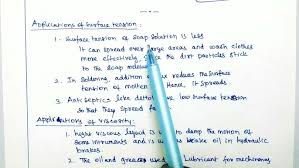 Applications of Surface tension :
1. Surface tension of soap solution is less
It can spread over large areas and wash clothes
more effectively, since the dirt particles stick
to the soap molecules
2. In Soldering, addition of flux reduces the Surface
tension of molten Hence, it spreads.
3. Antiseptics like dettol have low surface tension
so that they spread fa
Applications of Viscosity :
1. Highly viscous liquid is used to damp the motion of
Some instruments and is used as brake oil in hydraulic
brakes.
2. The oil and grease used Lubricant for machinery